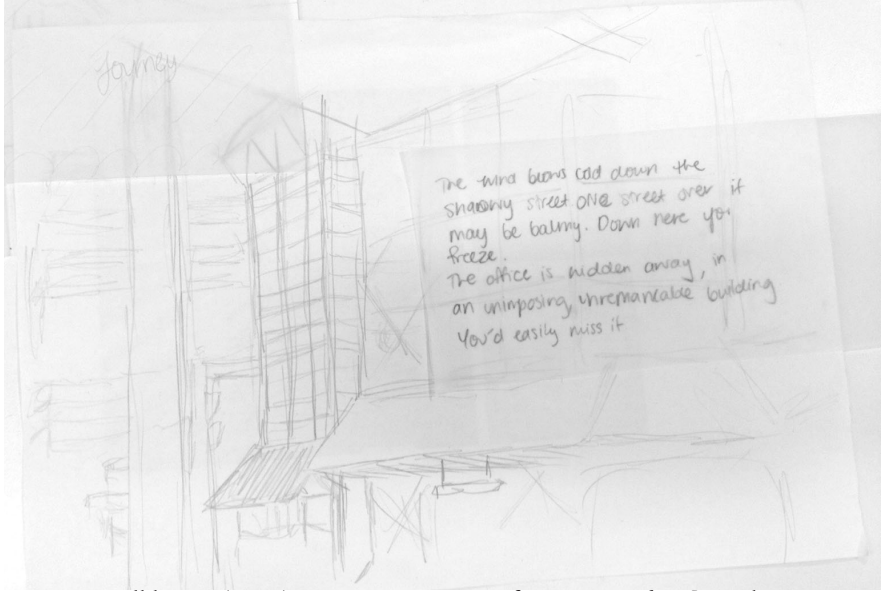 Journey
The wind blows cold down the
shadowy street ONE street over it
may be balmy. Down here you
freeze.
The office is hidden away, in
an unimposing, unremarkable building
You'd easily miss it